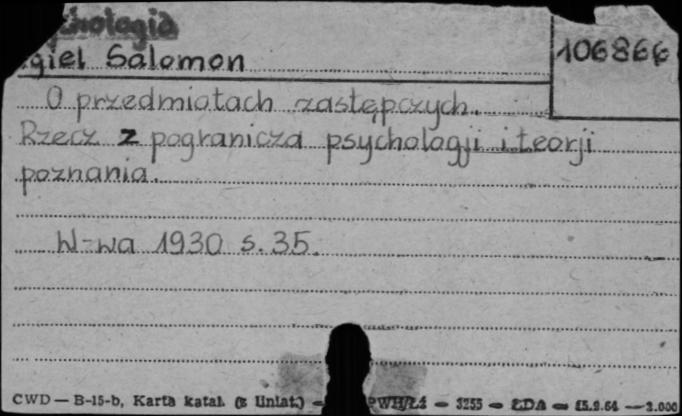 chologia
giel Salomon
106866
O przedmiotach zastępczych.
Rzecz z pogranicza psychologji i teorji
poznania.
W-wa 1930 s. 35.
CWD — B-15-b, Karta katal. (z liniat.) — PWH/Łź — 3255 — ŁDA — 15.9.64 — 2.000